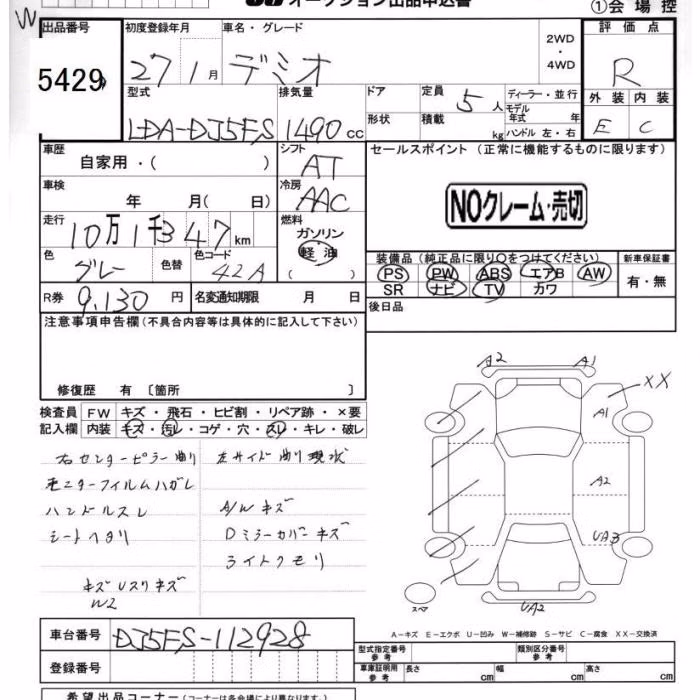 W
オークション出品申込書
①会場控
出品番号 5429
初度登録年月 27 1月
車名・グレード デミオ
2WD・4WD
評価点 R
外装 内装
E C
型式 LDA-DJ5FS
排気量 1490 cc
ドア
形状
定員 5人
積載 kg
ディーラー・並行
モデル年式 年
ハンドル 左・右
車歴 自家用・( )
シフト AT
冷房 AAC
車検 年 月( 日)
走行 10万1千347km
燃料 ガソリン 軽油 ( )
色 グレー
色替
色コード 42A
R券 9,130円
名変通知期限 月 日
セールスポイント (正常に機能するものに限ります)
NOクレーム・売切
装備品(純正品に限り○をつけてください)
PS PW ABS エアB AW
SR ナビ TV カワ
新車保証書
有・無
後日品
注意事項申告欄(不具合内容等は具体的に記入して下さい)
修復歴 有〔箇所 〕
検査員記入欄
FW キズ・飛石・ヒビ割・リペア跡・×要
内装 キズ・汚レ・コゲ・穴・スレ・キレ・破レ
右センターピラー曲り 左サイド曲り現状
モニターフィルムハガレ
ハンドルスレ A/Wキズ
シートヘタリ Dミラーカバーキズ
ライトクモリ
キズUスリキズ
W2
A2 A1
XX
A1
A2
UA3
スペア
UA2
A-キズ E-エクボ U-凹み W-補修跡 S-サビ C-腐食 XX-交換済
車台番号 DJ5FS-112928
登録番号
型式指定番号 参考
類別区分番号 参考
車庫証明用 参考
長さ cm 幅 cm 高さ cm
希望出品コーナー(コーナーは各会場により異なります。)